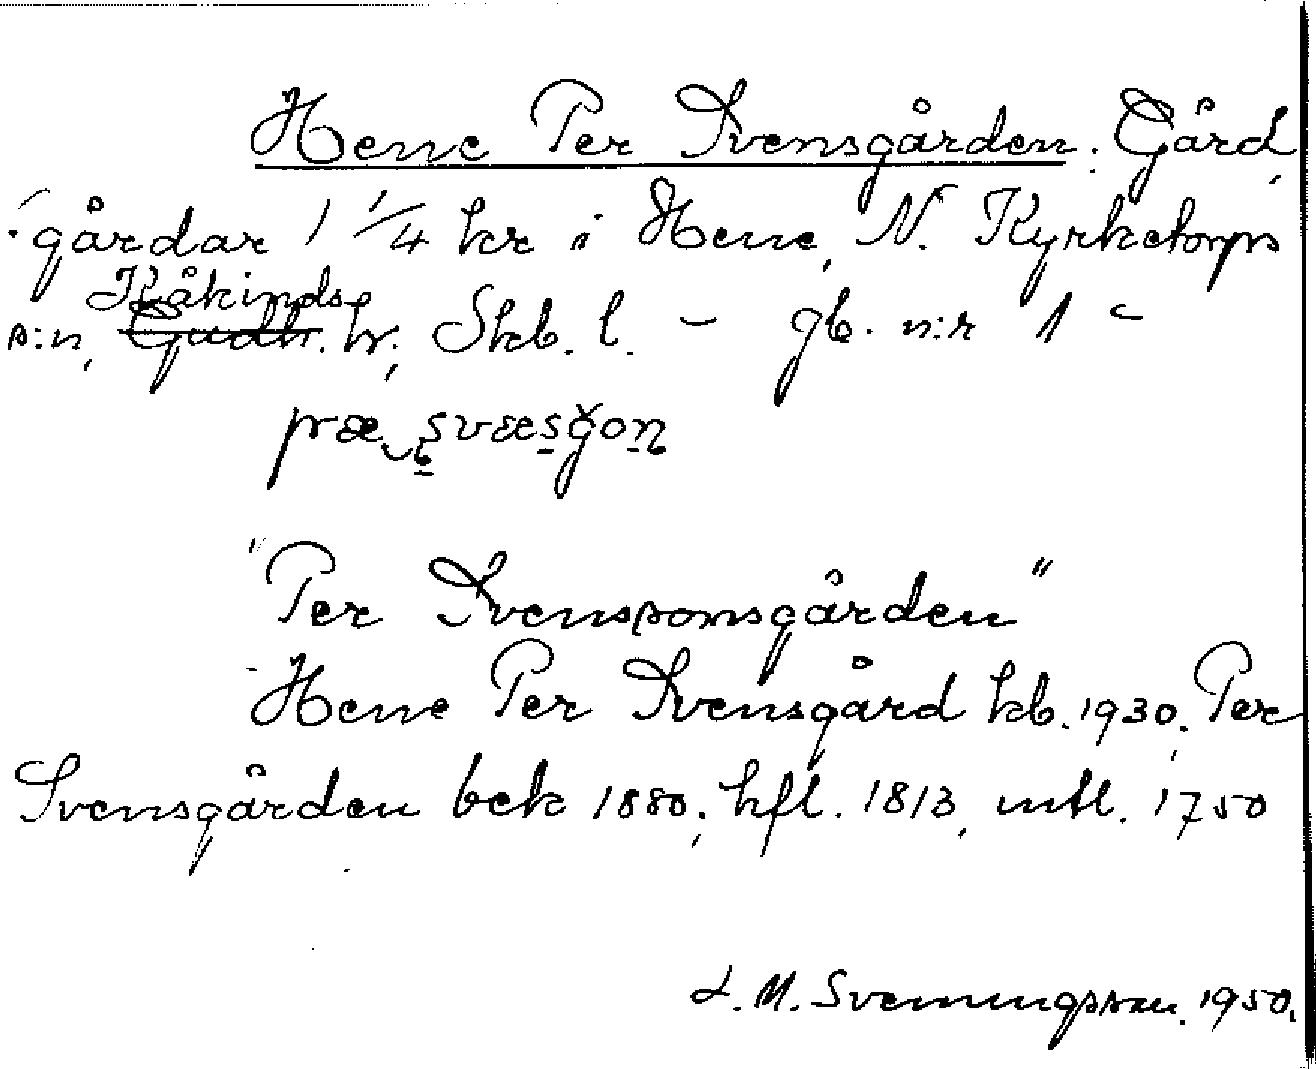 Hene Per Svensgården. Gård,
gårdar 1 1/4 kr i Hene, N. Kyrketorps
Kåkinds
s:n, Gudh. hr; Skb. l. – gb. n:r 1 –
"Per Svenssonsgården"
Hene Per Svensgård kb. 1930; Per
Svensgården bek 1880; hfl. 1813, mtl. 1750
L. M. Svenungsson. 1950.